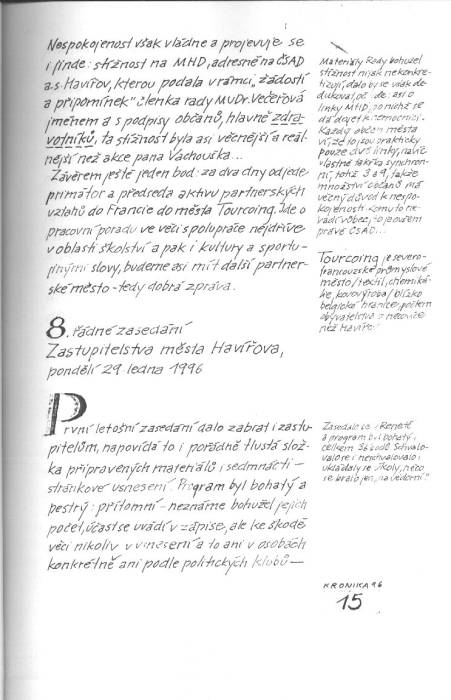 Nespokojenost však vládne a projevuje se
i jinde: stížnost na MHD, adresně na ČSAD
a.s. Havířov, kterou podala v rámci „žádostí
a připomínek" členka rady MuDr. Večeřová
jménem a s podpisy občanů, hlavně zdra-
votníků, ta stížnost byla asi věcnější a reál-
nější než akce pana Vachouška...
Závěrem ještě jeden bod: za dva dny odjede
primátor a předseda aktivu partnerských
vztahů do Francie do města Tourcoing. Jde o
pracovní poradu ve věci spolupráce nejdříve
v oblasti školství a pak i kultury a sportu –
jinými slovy, budeme asi mít další partner-
ské město – tedy dobrá zpráva.
Materiály Rady bohužel
stížnost nijak nekonkre-
tizují, dalo by se však de-
dukovat, že jde: asi o
linky MHD, po nichž se
dá dojet k nemocnici.
Každý občan města
ví, že to jsou prakticky
pouze dvě linky, navíc
vlastně takřka synchron-
ní, totiž 3 a 9, takže
množství občanů má
věčný důvod k nespo-
kojenosti. Komu to ne-
vadí vůbec, to je ovšem
právě ČSAD...
Tourcoing je severo-
francouzské průmyslové
město /textil, chemiká-
lie, kovovýroba/ blízko
belgické hranice, počtem
obyvatelstva o něco více
než Havířov.
8. řádné zasedání
Zastupitelstva města Havířova,
pondělí 29. ledna 1996
První letošní zasedání dalo zabrat i zastu-
pitelům, napovídá to i pořádně tlustá slož-
ka připravených materiálů i sedmnácti –
stránkové usnesení. Program byl bohatý a
pestrý: přítomní – neznáme bohužel jejich
počet, účast se uvádí v zápise, ale ke škodě
věci nikoliv v usnesení a to ani v osobách
konkrétně ani podle politických klubů –
Zasedalo se v Renetě
a program byl bohatý:
celkem 36 bodů. Schvalo-
valo se i neschvalovalo i
ukládaly se úkoly, nebo
se bralo jen „na vědomí"
KRONIKA 96
15